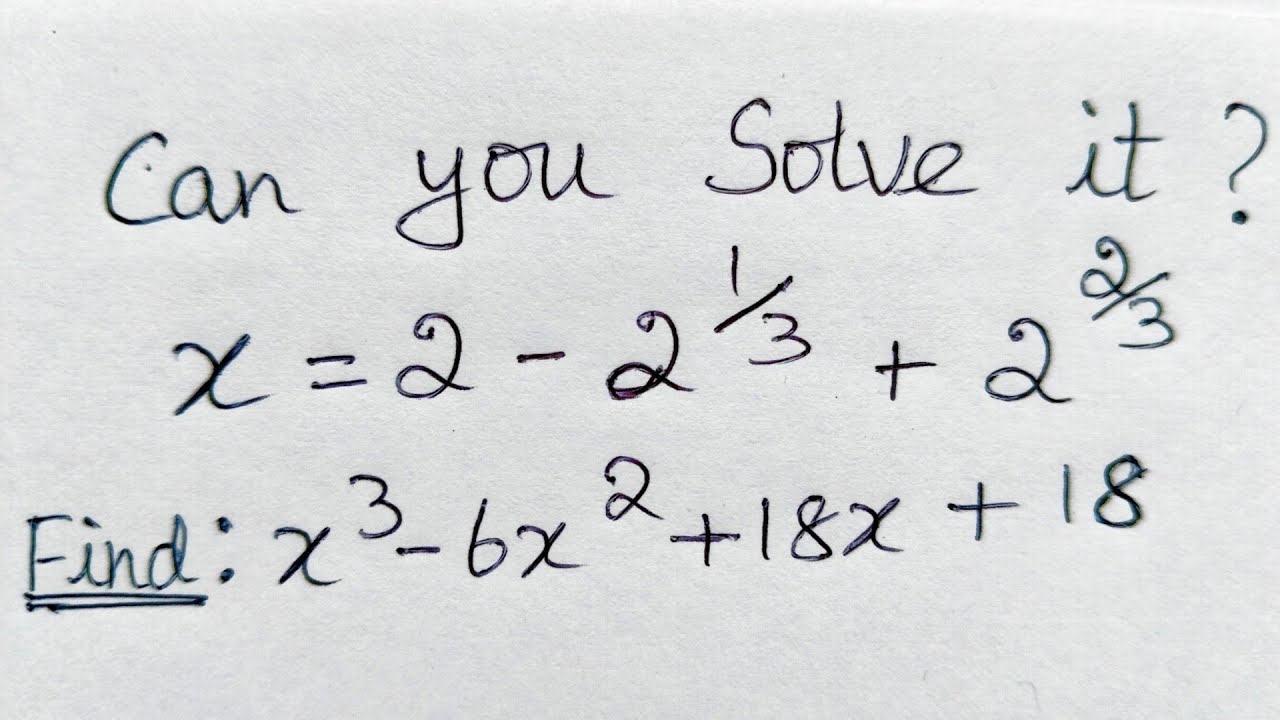 Can you Solve it?
x = 2 - 2^1/3 + 2^2/3
Find: x^3 - 6x^2 + 18x + 18